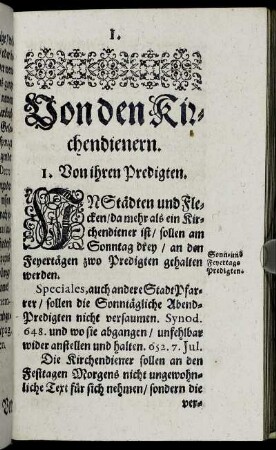 I.
Von den Kir-
chendienern.
1. Von ihren Predigten.
IN Städten und Fle-
cken / da mehr als ein Kir-
chendiener ist / sollen am
Sonntag drey / an den
Feyertägen zwo Predigten gehalten
werden.
Sonn- und
Feyertags
Predigten.
Speciales, auch andere Stadt Pfar-
rer / sollen die Sonntägliche Abend-
Predigten nicht versaumen. Synod.
648. und wo sie abgangen / unfehlbar
wider anstellen und halten. 652. 7. Jul.
Die Kirchendiener sollen an den
Festtagen Morgens nicht ungewohn-
liche Text für sich nehmen / sondern die
ver-